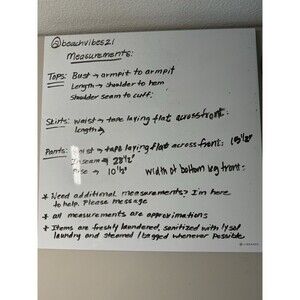 @beachvibes21
Measurements:
Tops: Bust → armpit to armpit
Length → shoulder to hem
Shoulder seam to cuff:
Skirts: waist → tape laying flat across front:
length →
Pants: waist → tape laying flat across front: 15 1/2"
Inseam → 28 1/2"
Rise → 10 1/2" Width of bottom leg front:
* Need additional measurements? I'm here
to help. Please message
* all measurements are approximations
* Items are freshly laundered, sanitized with lysol
laundry and steamed / bagged whenever possible.